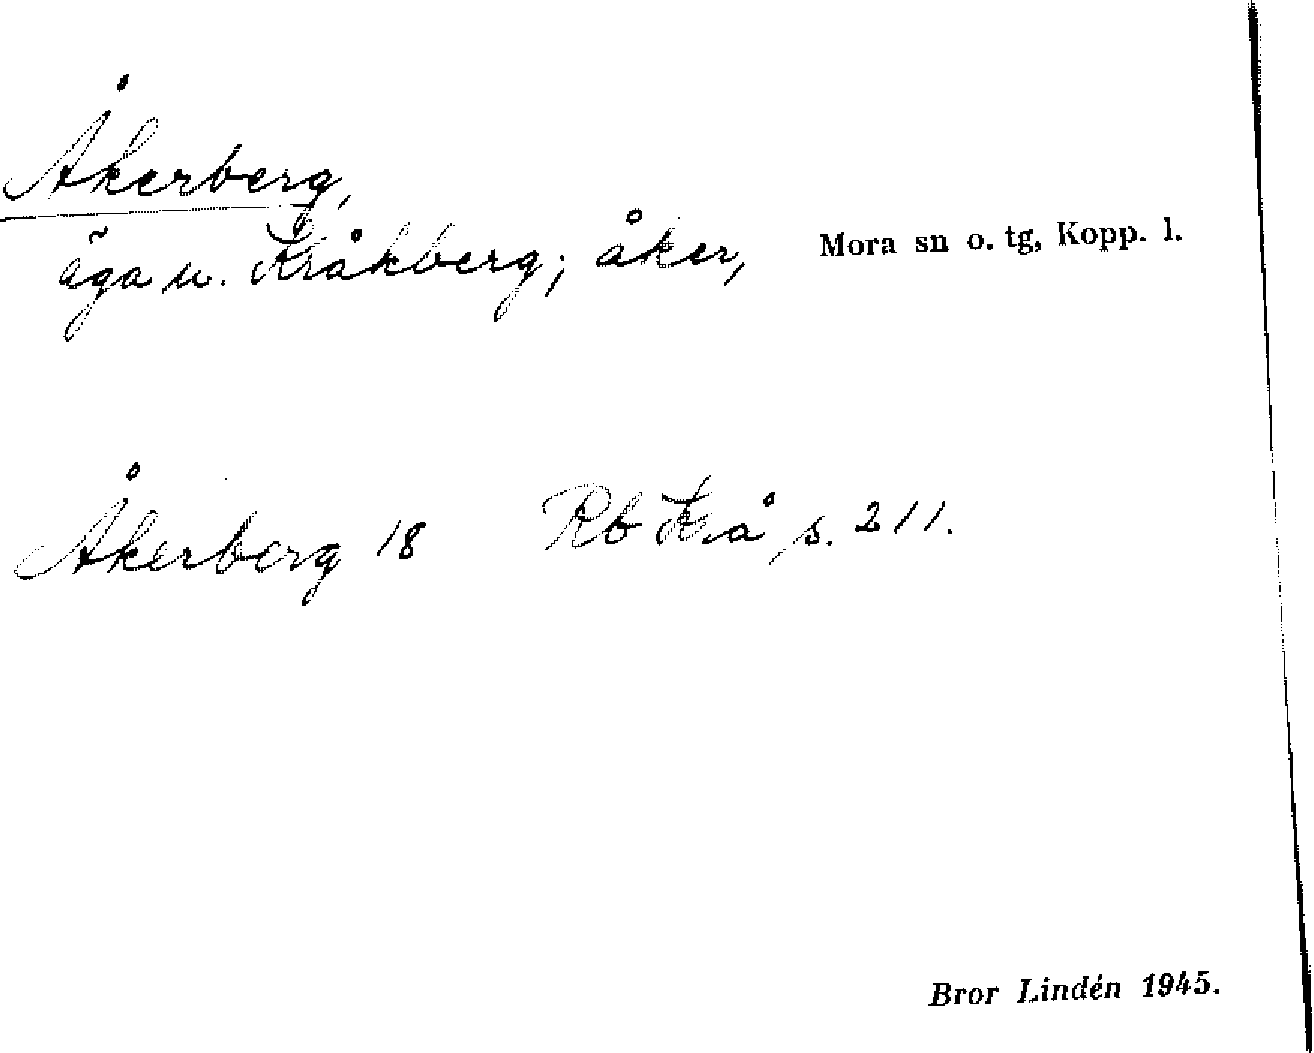 Åkerberg,
äga u. Kråkberg; åker, Mora sn o. tg, Kopp. l.
Åkerberg 18 Rb Krå s. 211.
Bror Lindén 1945.